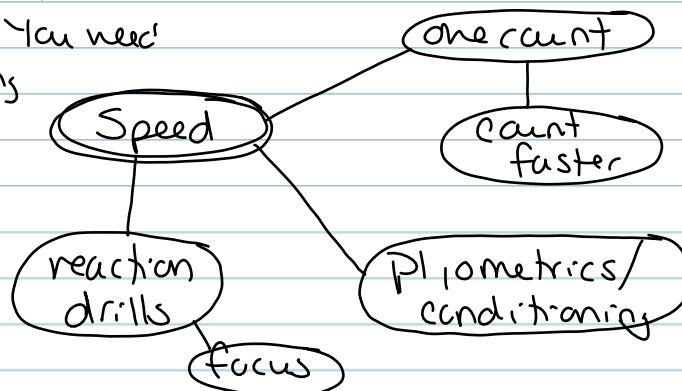 You need
one count
Speed
count
faster
reaction
drills
pliometrics/
conditioning
focus